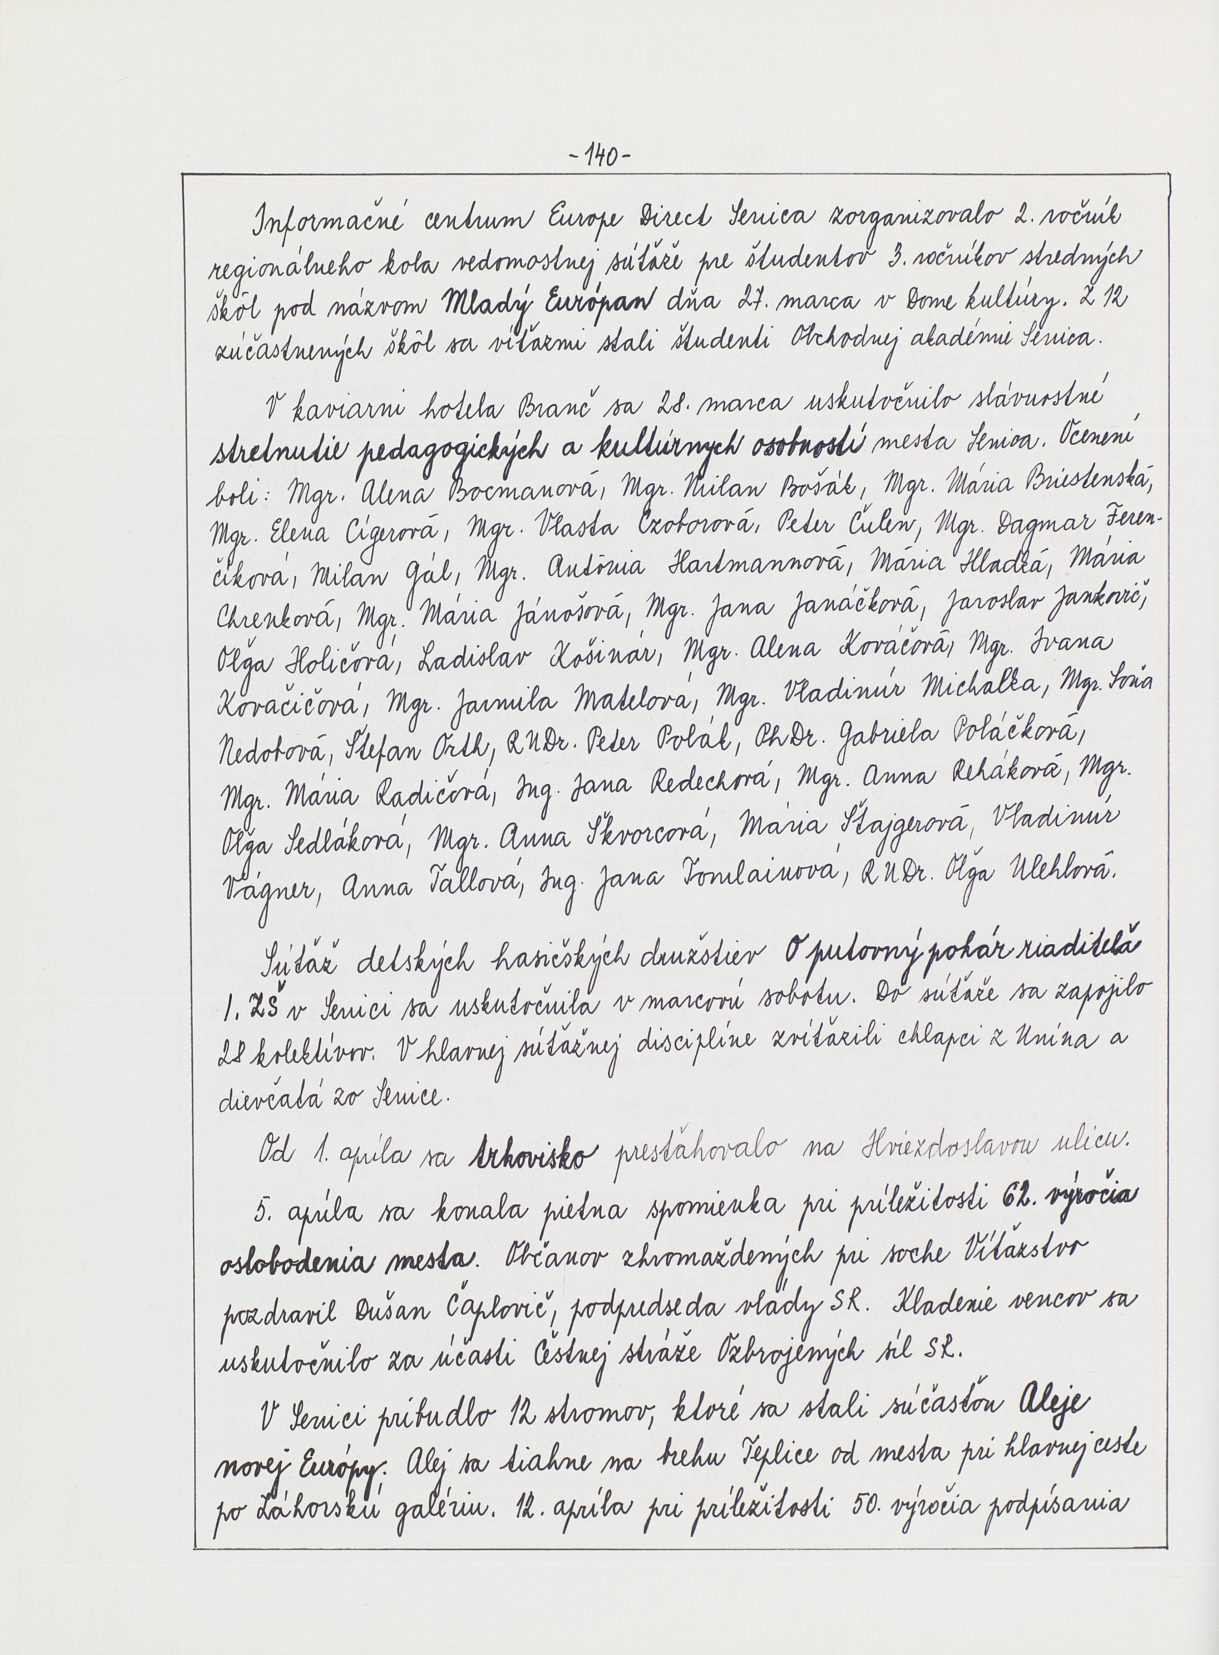 -140-
Informačné centrum Europe Direct Senica zorganizovalo 2. ročník
regionálneho kola vedomostnej súťaže pre študentov 3. ročníkov stredných
škôl pod názvom Mladý Európan dňa 27. marca v Dome kultúry. Z 12
zúčastnených škôl sa víťazmi stali študenti Obchodnej akadémie Senica.
V kaviarni hotela Branč sa 28. marca uskutočnilo slávnostné
stretnutie pedagogických a kultúrnych osobností mesta Senica. Ocenení
boli: Mgr. Alena Bocmanová, Mgr. Milan Bošák, Mgr. Mária Briestenská,
Mgr. Elena Cígerová, Mgr. Vlasta Czoborová, Peter Čulen, Mgr. Dagmar Feren-
číková, Milan Gál, Mgr. Antónia Hartmannová, Mária Hladká, Mária
Chrenková, Mgr. Mária Jánošová, Mgr. Jana Janáčková, Jaroslav Jankovič,
Oľga Holičová, Ladislav Košinár, Mgr. Alena Kováčová, Mgr. Ivana
Kovačičová, Mgr. Jarmila Matelová, Mgr. Vladimír Michalka, Mgr. Soňa
Nedobová, Štefan Orth, RNDr. Peter Polák, PhDr. Gabriela Poláčková,
Mgr. Mária Radičová, Ing. Jana Redechová, Mgr. Anna Reháková, Mgr.
Oľga Sedláková, Mgr. Anna Škvorcová, Mária Štajgerová, Vladimír
Vágner, Anna Tallová, Ing. Jana Tomlainová, RNDr. Oľga Ulehlová.
Súťaž detských hasičských družstiev O putovný pohár riaditeľa
1. ZŠ v Senici sa uskutočnila v marcovú sobotu. Do súťaže sa zapojilo
28 kolektívov. V hlavnej súťažnej disciplíne zvíťazili chlapci z Unína a
dievčatá zo Senice.
Od 1. apríla sa trhovisko presťahovalo na Hviezdoslavou ulicu.
5. apríla sa konala pietna spomienka pri príležitosti 62. výročia
oslobodenia mesta. Občanov zhromaždených pri soche Víťazstvo
pozdravil Dušan Čaplovič, podpredseda vlády SR. Kladenie vencov sa
uskutočnilo za účasti Čestnej stráže Ozbrojených síl SR.
V Senici pribudlo 12 stromov, ktoré sa stali súčasťou Aleje
novej Európy. Alej sa tiahne na brehu Teplice od mesta pri hlavnej ceste
po Záhorskú galériu. 12. apríla pri príležitosti 50. výročia podpísania